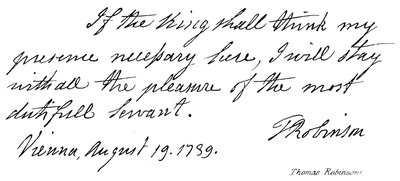 If the King shall think my
presence necessary here, I will stay
with all the pleasure of the most
dutifull servant.
TRobinson
Vienna, August 19. 1739.
Thomas Robinson.